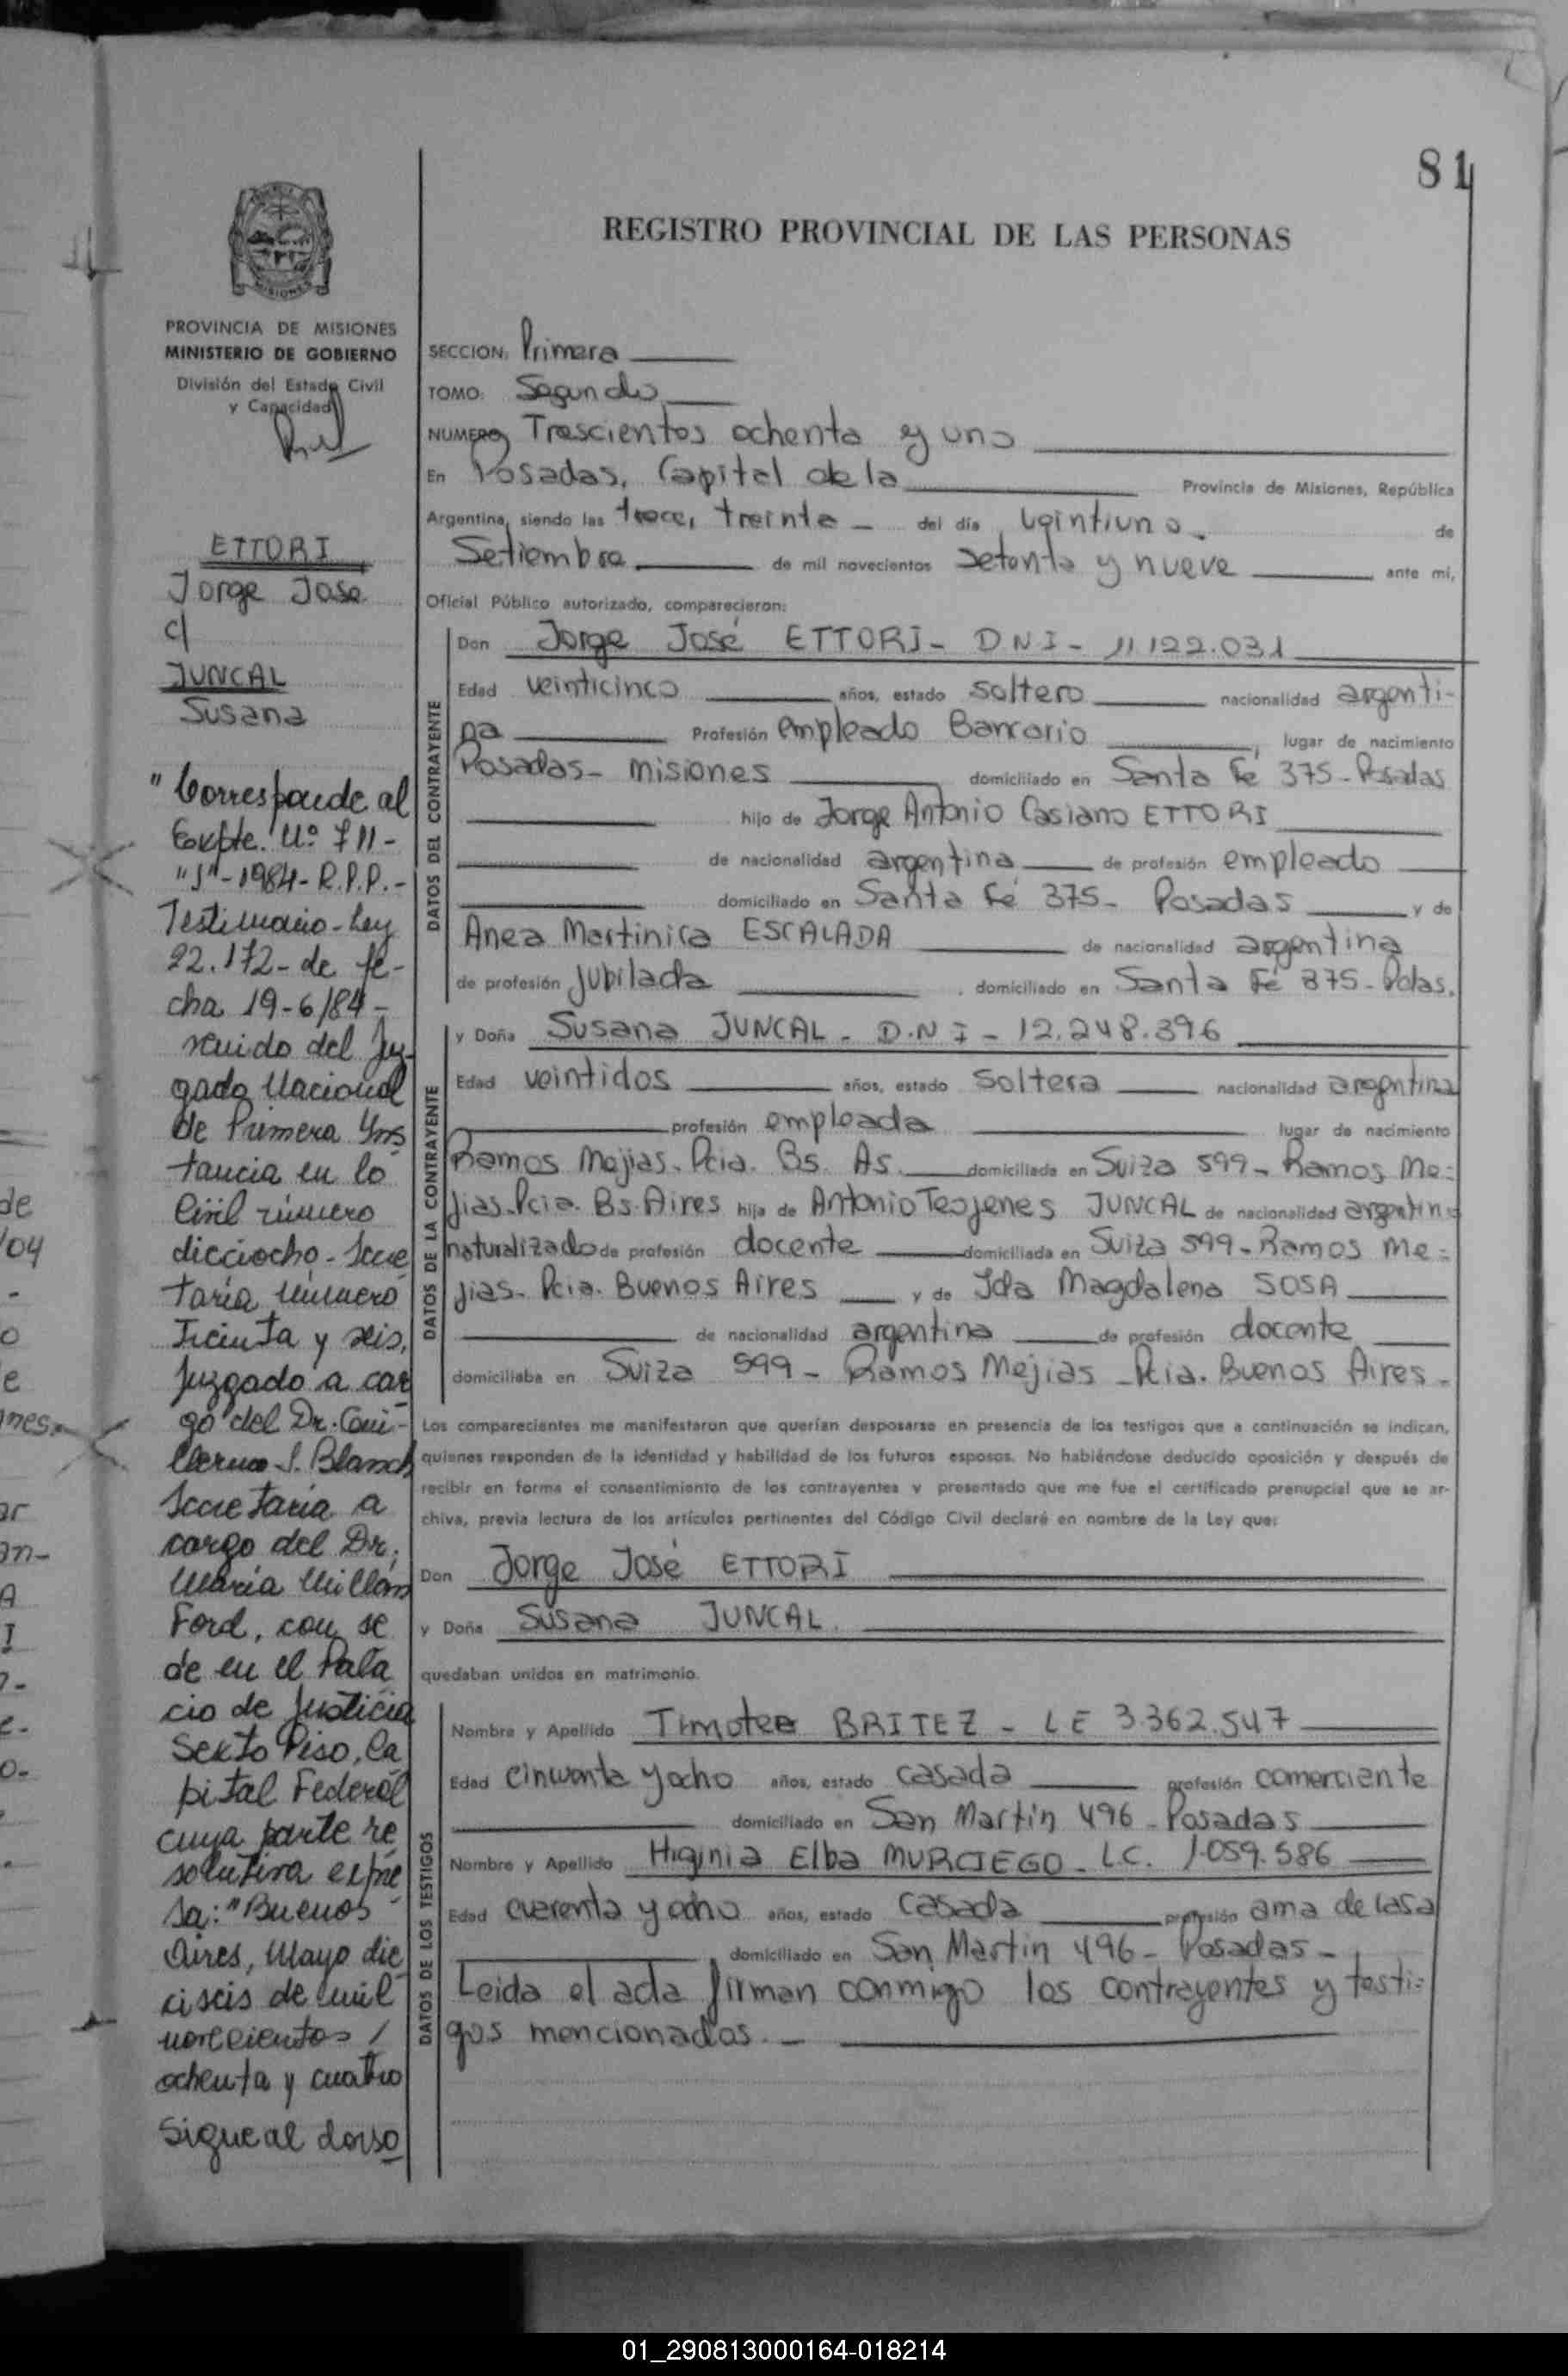 81
REGISTRO PROVINCIAL DE LAS PERSONAS
MISIONES
PROVINCIA DE MISIONES
MINISTERIO DE GOBIERNO
División del Estado Civil
y Capacidad
ETTORI
Jorge Jose
c/
JUNCAL
Susana
"Corresponde al
Expte. Nº 711-
"J"-1984-R.P.P.-
Testimonio-Ley
22.172-de fe-
cha 19-6/84-
venido del Juz-
gado Nacional
de Primera Yns
tancia en lo
Civil número
dieciocho-Secre
taria número
Treinta y seis,
Juzgado a car
go del Dr. Gui-
llermo J. Blanch
Secretaria a
cargo del Dr.
María Millán
Ford, con se
de en el Pala
cio de Justicia
Sexto Piso, Ca
pital Federal
cuya parte re
solutiva expre
sa: "Buenos
Aires, Mayo die
ciseis de mil
novecientos /
ochenta y cuatro
Sigue al dorso
SECCION: Primera
TOMO: Segundo
NUMERO Trescientos ochenta y uno
En Posadas, Capital de la Provincia de Misiones, República
Argentina, siendo las trece, treinta - del día veintiuno. de
Setiembre de mil novecientos setenta y nueve ante mí,
Oficial Público autorizado, comparecieron:
DATOS DEL CONTRAYENTE
Don Jorge José ETTORI - DNI - 11.122.031
Edad veinticinco años, estado soltero nacionalidad argenti-
na Profesión empleado Bancario, lugar de nacimiento
Posadas - Misiones domiciliado en Santa Fé 375 - Posadas
hijo de Jorge Antonio Casiano ETTORI
de nacionalidad argentina de profesión empleado
domiciliado en Santa Fé 375 - Posadas y de
Anea Martinica ESCALADA de nacionalidad argentina
de profesión Jubilada, domiciliado en Santa Fé 375 - Pdas.
DATOS DE LA CONTRAYENTE
y Doña Susana JUNCAL - D.N I - 12.248.396
Edad veintidos años, estado soltera nacionalidad argentina
profesión empleada lugar de nacimiento
Ramos Mejias. Pcia. Bs. As. domiciliada en Suiza 599 - Ramos Me=
jias. Pcia. Bs. Aires hija de Antonio Teojenes JUNCAL de nacionalidad argentino
naturalizado de profesión docente domiciliada en Suiza 599 - Ramos Me=
jias - Pcia. Buenos Aires y de Ida Magdalena SOSA
de nacionalidad argentina de profesión docente
domiciliaba en Suiza 599 - Ramos Mejias - Pcia. Buenos Aires -
Los comparecientes me manifestaron que querían desposarse en presencia de los testigos que a continuación se indican,
quienes responden de la identidad y habilidad de los futuros esposos. No habiéndose deducido oposición y después de
recibir en forma el consentimiento de los contrayentes y presentado que me fue el certificado prenupcial que se ar-
chiva, previa lectura de los artículos pertinentes del Código Civil declaré en nombre de la Ley que:
Don Jorge José ETTORI
y Doña Susana JUNCAL.
quedaban unidos en matrimonio.
DATOS DE LOS TESTIGOS
Nombre y Apellido Timotea BRITEZ - LE 3.362.547
Edad cincuenta y ocho años, estado casada profesión comerciante
domiciliado en San Martín 496 - Posadas
Nombre y Apellido Higinia Elba MURCIEGO - L.C. 1.059.586
Edad cuarenta y ocho años, estado casada profesión ama de casa
domiciliado en San Martín 496 - Posadas -
Leida el acta firman conmigo los contrayentes y testi=
gos mencionados. -
01_290813000164-018214